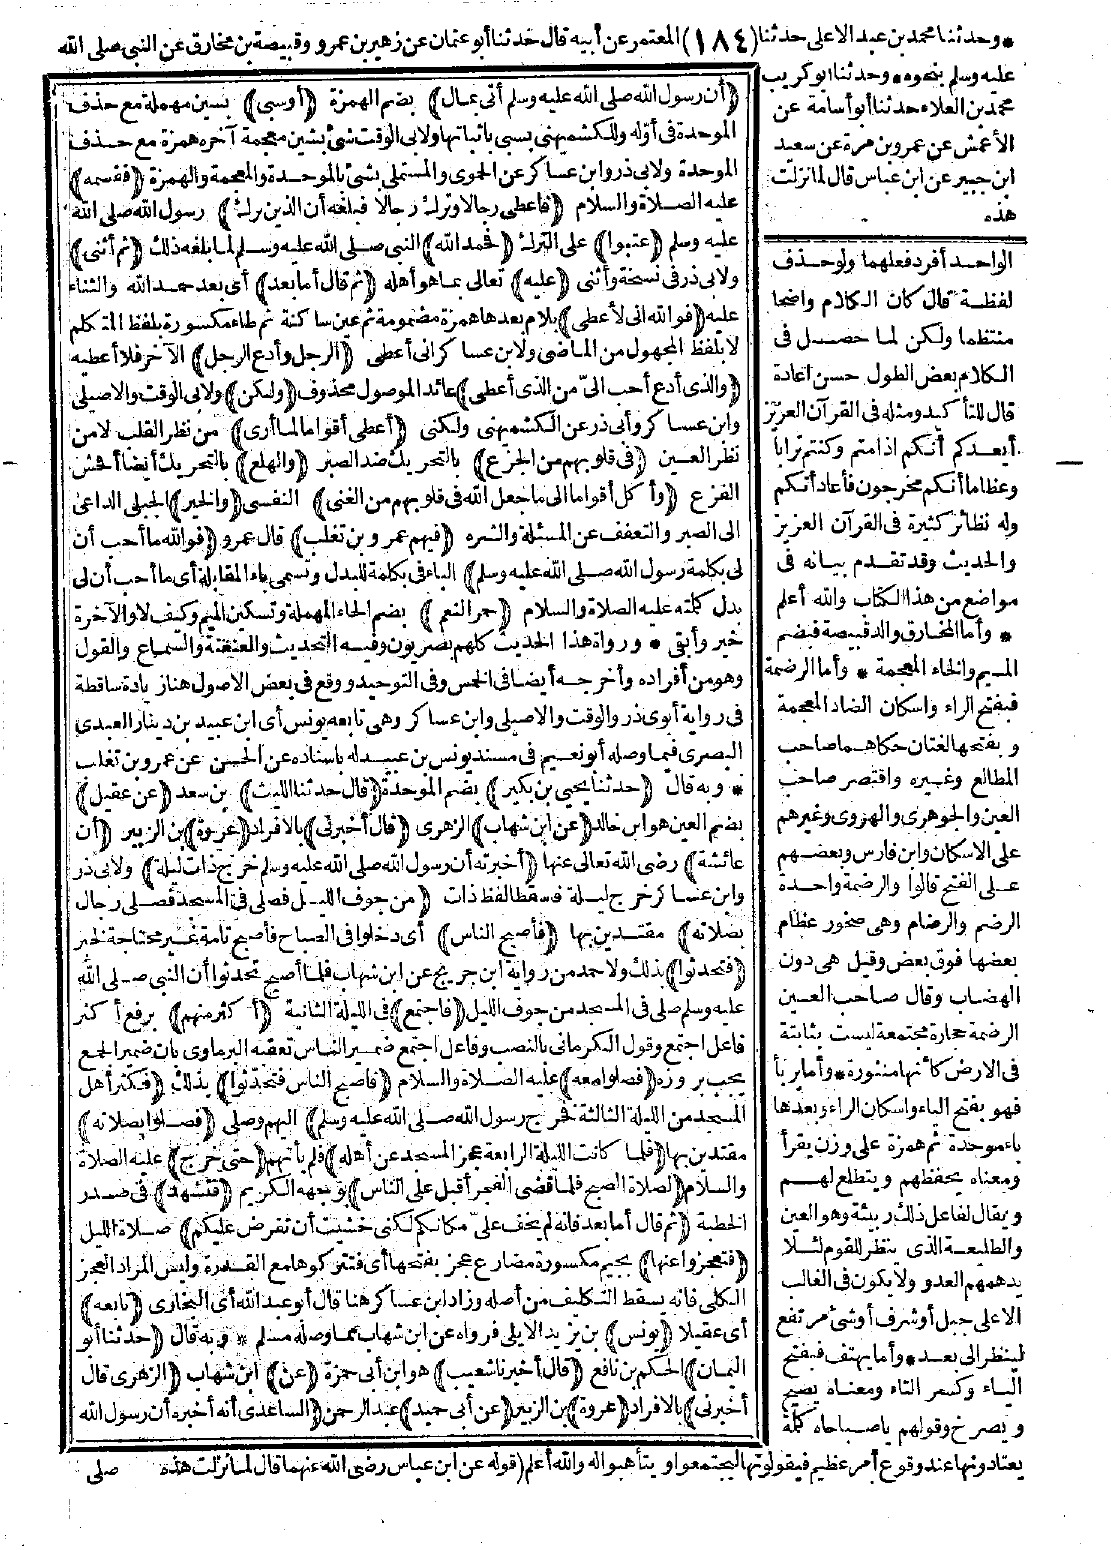 * وحدثنا محمد بن عبد الاعلى حدثنا (١٨٤) المعتمر عن أبيه قال حدثنا أبو عثمان عن زهير بن عمرو وقبيصة بن مخارق عن النبى صلى الله
عليه وسلم بنحوه * وحدثنا أبو كريب
محمد بن العلاء حدثنا أبو أسامة عن
الأعمش عن عمرو بن مرة عن سعيد
ابن جبير عن ابن عباس قال لما نزلت
هذه
الواحد أفرد فعلهما ولو حذف
لفظة قال كان الكلام واضحا
منتظما ولكن لما حصل فى
الكلام بعض الطول حسن اعادة
قال للتأكيد ومثله فى القرآن العزيز
أيعدكم أنكم اذا متم وكنتم ترابا
وعظاما أنكم مخرجون فأعاد أنكم
وله نظائر كثيرة فى القرآن العزيز
والحديث وقد تقدم بيانه فى
مواضع من هذا الكتاب والله أعلم
* وأما المخارق والد قبيصة فبضم
الميم والخاء المعجمة * وأما الرضمة
فبفتح الراء واسكان الضاد المعجمة
وبفتحها لغتان حكاهما صاحب
المطالع وغيره واقتصر صاحب
العين والجوهرى والهروى وغيرهم
على الاسكان وابن فارس وبعضهم
على الفتح قالوا والرضمة واحدة
الرضم والرضام وهى صخور عظام
بعضها فوق بعض وقيل هى دون
الهضاب وقال صاحب العين
الرضمة حجارة مجتمعة ليست بثابتة
فى الارض كأنها منثورة * وأما يربأ
فهو بفتح الياء واسكان الراء وبعدها
باء موحدة ثم همزة على وزن يقرأ
ومعناه يحفظهم ويتطلع لهم
ويقال لفاعل ذلك ربيئة وهو العين
والطليعة الذى ينظر للقوم لئلا
يدهمهم العدو ولا يكون فى الغالب
الا على جبل أو شرف أو شئ مرتفع
لينظر الى بعد * وأما يهتف فبفتح
الياء وكسر التاء ومعناه يصيح
ويصرخ وقولهم يا صباحاه كلمة
يعتادونها عند وقوع أمر عظيم فيقولونها ليجتمعوا ويتأهبوا له والله أعلم (قوله عن ابن عباس رضى الله عنهما قال لما نزلت هذه
(أن رسول الله صلى الله عليه وسلم أتى بمال) بضم الهمزة (أو سبى) بسين مهملة مع حذف
الموحدة فى أوله وللكشميهنى بسبى باثباتها ولابى الوقت شئ بشين معجمة آخره همزة مع حذف
الموحدة ولابى ذر وابن عساكر عن الحموى والمستملى بشئ بالموحدة والمعجمة والهمزة (فقسمه)
عليه الصلاة والسلام (فأعطى رجالا وترك رجالا فبلغه أن الذين ترك) رسول الله صلى الله
عليه وسلم (عتبوا) على الترك (فحمد الله) النبى صلى الله عليه وسلم لما بلغه ذلك (ثم أثنى)
ولابى ذر فى نسخة وأثنى (عليه) تعالى بما هو أهله (ثم قال أما بعد) أى بعد حمد الله والثناء
عليه (فوالله انى لأعطى) بلام بعدها همزة مضمومة ثم عين ساكنة ثم طاء مكسورة بلفظ المتكلم
لا بلفظ المجهول من الماضى ولابن عساكر انى أعطى (الرجل وأدع الرجل) الآخر فلا أعطيه
(والذى أدع أحب الىّ من الذى أعطى) عائد الموصول محذوف (ولكن) ولابى الوقت والاصيلى
وابن عساكر وأبى ذر عن الكشميهنى ولكنى (أعطى أقواما لما أرى) من نظر القلب لا من
نظر العين (فى قلوبهم من الجزع) بالتحريك ضد الصبر (والهلع) بالتحريك أيضا أفحش
الفزع (وأكل أقواما الى ما جعل الله فى قلوبهم من الغنى) النفسى (والخير) الجبلى الداعى
الى الصبر والتعفف عن المسئلة والشره (فيهم عمرو بن تغلب) قال عمرو (فوالله ما أحب أن
لى بكلمة رسول الله صلى الله عليه وسلم) الباء فى بكلمة للبدل وتسمى باء المقابلة أى ما أحب أن لى
بدل كلمته عليه الصلاة والسلام (حمر النعم) بضم الحاء المهملة وتسكين الميم وكيف لا والآخرة
خير وأبقى * ورواة هذا الحديث كلهم بصريون وفيه التحديث والعنعنة والسماع والقول
وهو من أفراده وأخرجه أيضا فى الخمس وفى التوحيد ووقع فى بعض الاصول هنا زيادة ساقطة
فى رواية أبوى ذر والوقت والاصيلى وابن عساكر وهى تابعه يونس أى ابن عبيد بن دينار العبدى
البصرى فيما وصله أبو نعيم فى مسند يونس بن عبيد له باسناده عن الحسن عن عمرو بن تغلب
* وبه قال (حدثنا يحيى بن بكير) بضم الموحدة (قال حدثنا الليث) بن سعد (عن عقيل)
بضم العين هو ابن خالد (عن ابن شهاب) الزهرى (قال أخبرنى) بالافراد (عروة) بن الزبير (أن
عائشة) رضى الله تعالى عنها (أخبرته أن رسول الله صلى الله عليه وسلم خرج ذات ليلة) ولابى ذر
وابن عساكر خرج ليلة فسقط لفظ ذات (من جوف الليل فصلى فى المسجد فصلى رجال
بصلاته) مقتدين بها (فأصبح الناس) أى دخلوا فى الصباح فأصبح تامة غير محتاجة لخبر
(فتحدثوا) بذلك ولاحمد من رواية ابن جريج عن ابن شهاب فلما أصبح تحدثوا أن النبى صلى الله
عليه وسلم صلى فى المسجد من جوف الليل (فاجتمع) فى الليلة الثانية (أكثر منهم) برفع أكثر
فاعل اجتمع وقول الكرمانى بالنصب وفاعل اجتمع ضمير الناس تعقبه البرماوى بان ضمير الجمع
يجب بروزه (فصلوا معه) عليه الصلاة والسلام (فأصبح الناس فتحدثوا) بذلك (فكثر أهل
المسجد من الليلة الثالثة فخرج رسول الله صلى الله عليه وسلم) اليهم وصلى (فصلوا بصلاته)
مقتدين بها (فلما كانت الليلة الرابعة عجز المسجد عن أهله) فلم يأتهم (حتى خرج) عليه الصلاة
والسلام (لصلاة الصبح فلما قضى الفجر أقبل على الناس) بوجهه الكريم (فتشهد) فى صدر
الخطبة (ثم قال أما بعد فانه لم يخف علىّ مكانكم لكنى خشيت أن تفرض عليكم) صلاة الليل
(فتعجزوا عنها) بجيم مكسورة مضارع عجز بفتحها أى فتتركوها مع القدرة وليس المراد العجز
الكلى فانه يسقط التكليف من أصله وزاد ابن عساكر هنا قال أبو عبد الله أى البخارى (تابعه)
أى عقيلا (يونس) بن يزيد الايلى فرواه عن ابن شهاب مما وصله مسلم * وبه قال (حدثنا أبو
اليمان) الحكم بن نافع (قال أخبرنا شعيب) هو ابن أبى حمزة (عن) ابن شهاب (الزهرى قال
أخبرنى) بالافراد (عروة) بن الزبير (عن أبى حميد) عبد الرحمن (الساعدى أنه أخبره أن رسول الله
صلى